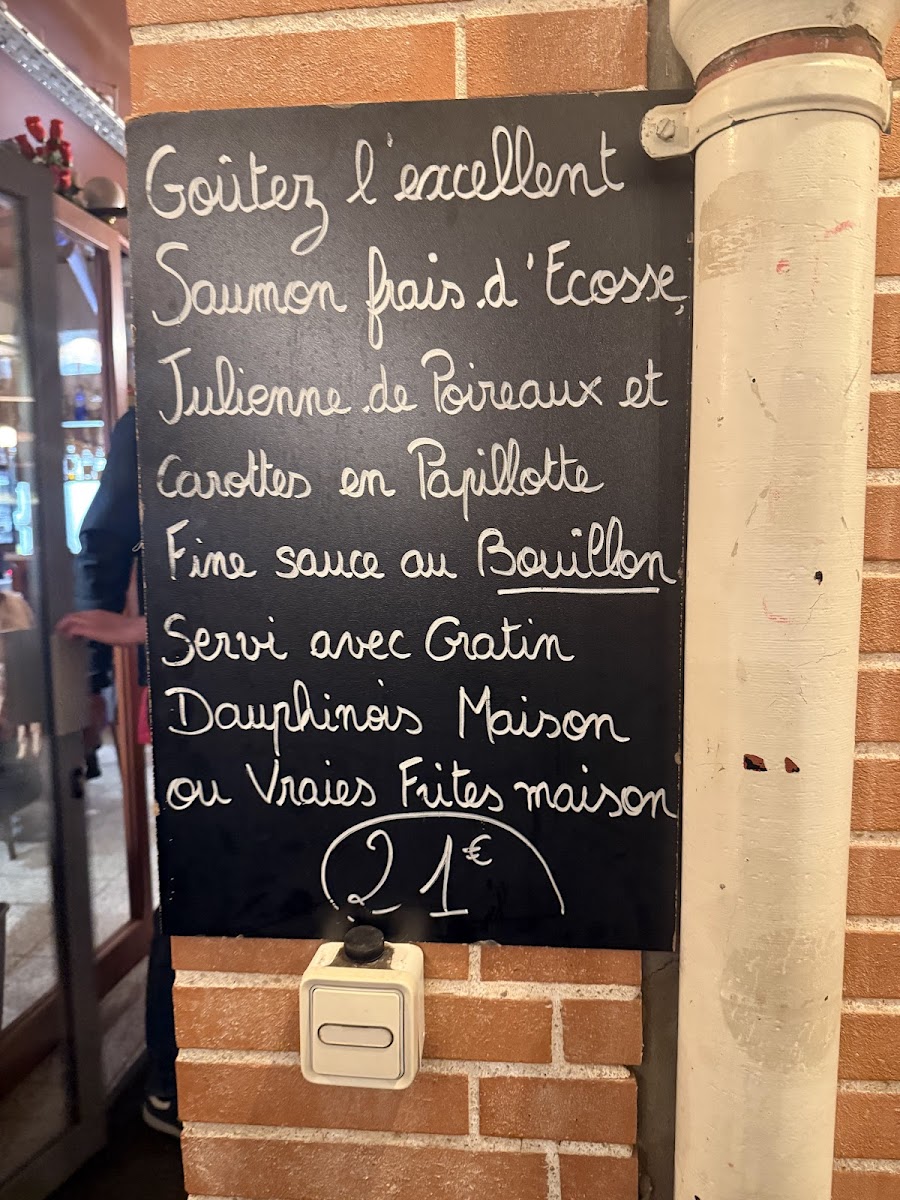 Goûtez l'excellent
Saumon frais d'Ecosse,
Julienne de Poireaux et
carottes en Papillotte
Fine sauce au Bouillon
Servi avec Gratin
Dauphinois Maison
ou Vraies Frites maison
21€